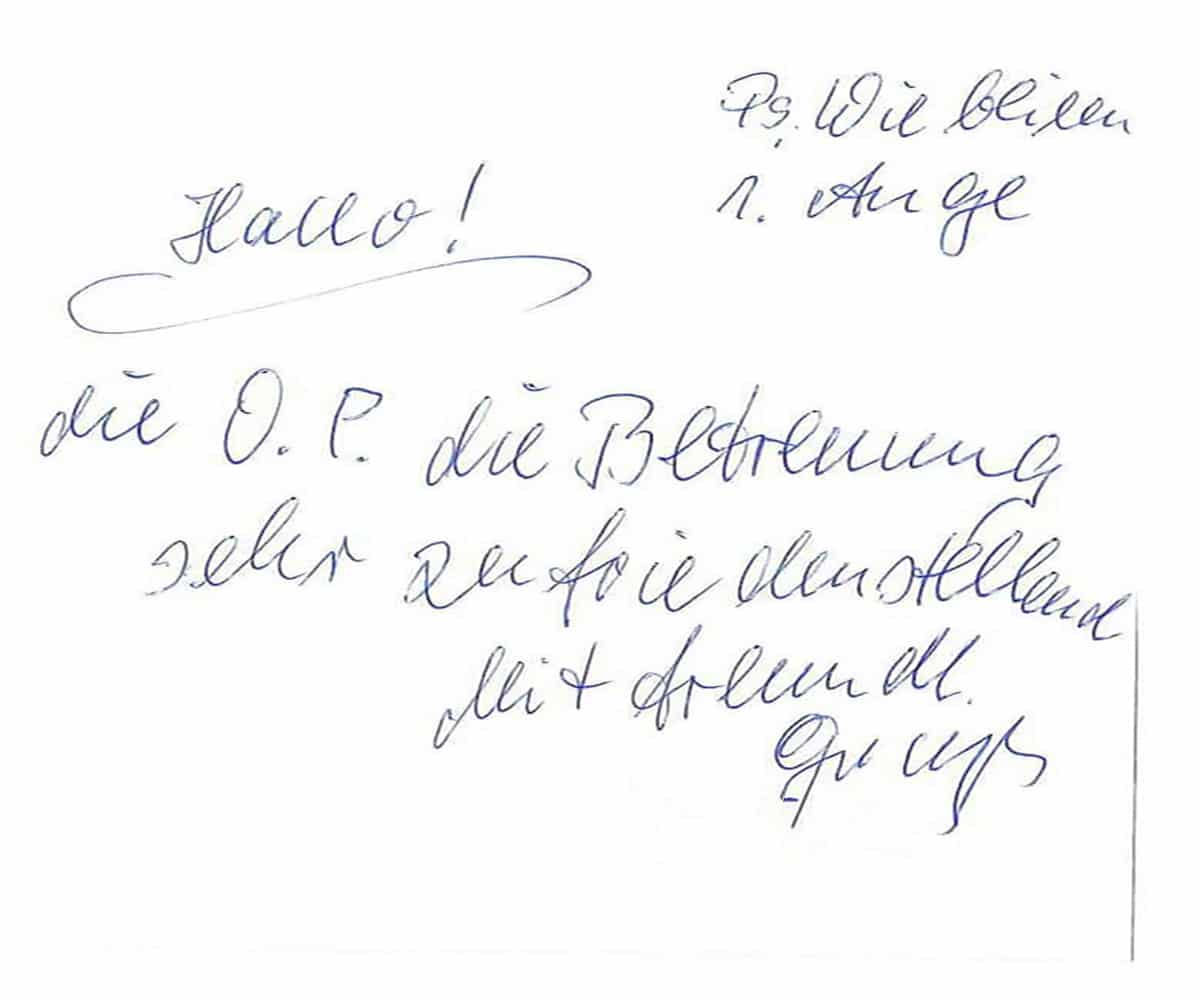 Ps. Wir bleiben
i. Auge
Hallo!
die O. P. die Betreuung
sehr zufriedenstellend
Mit freundl.
Gruß